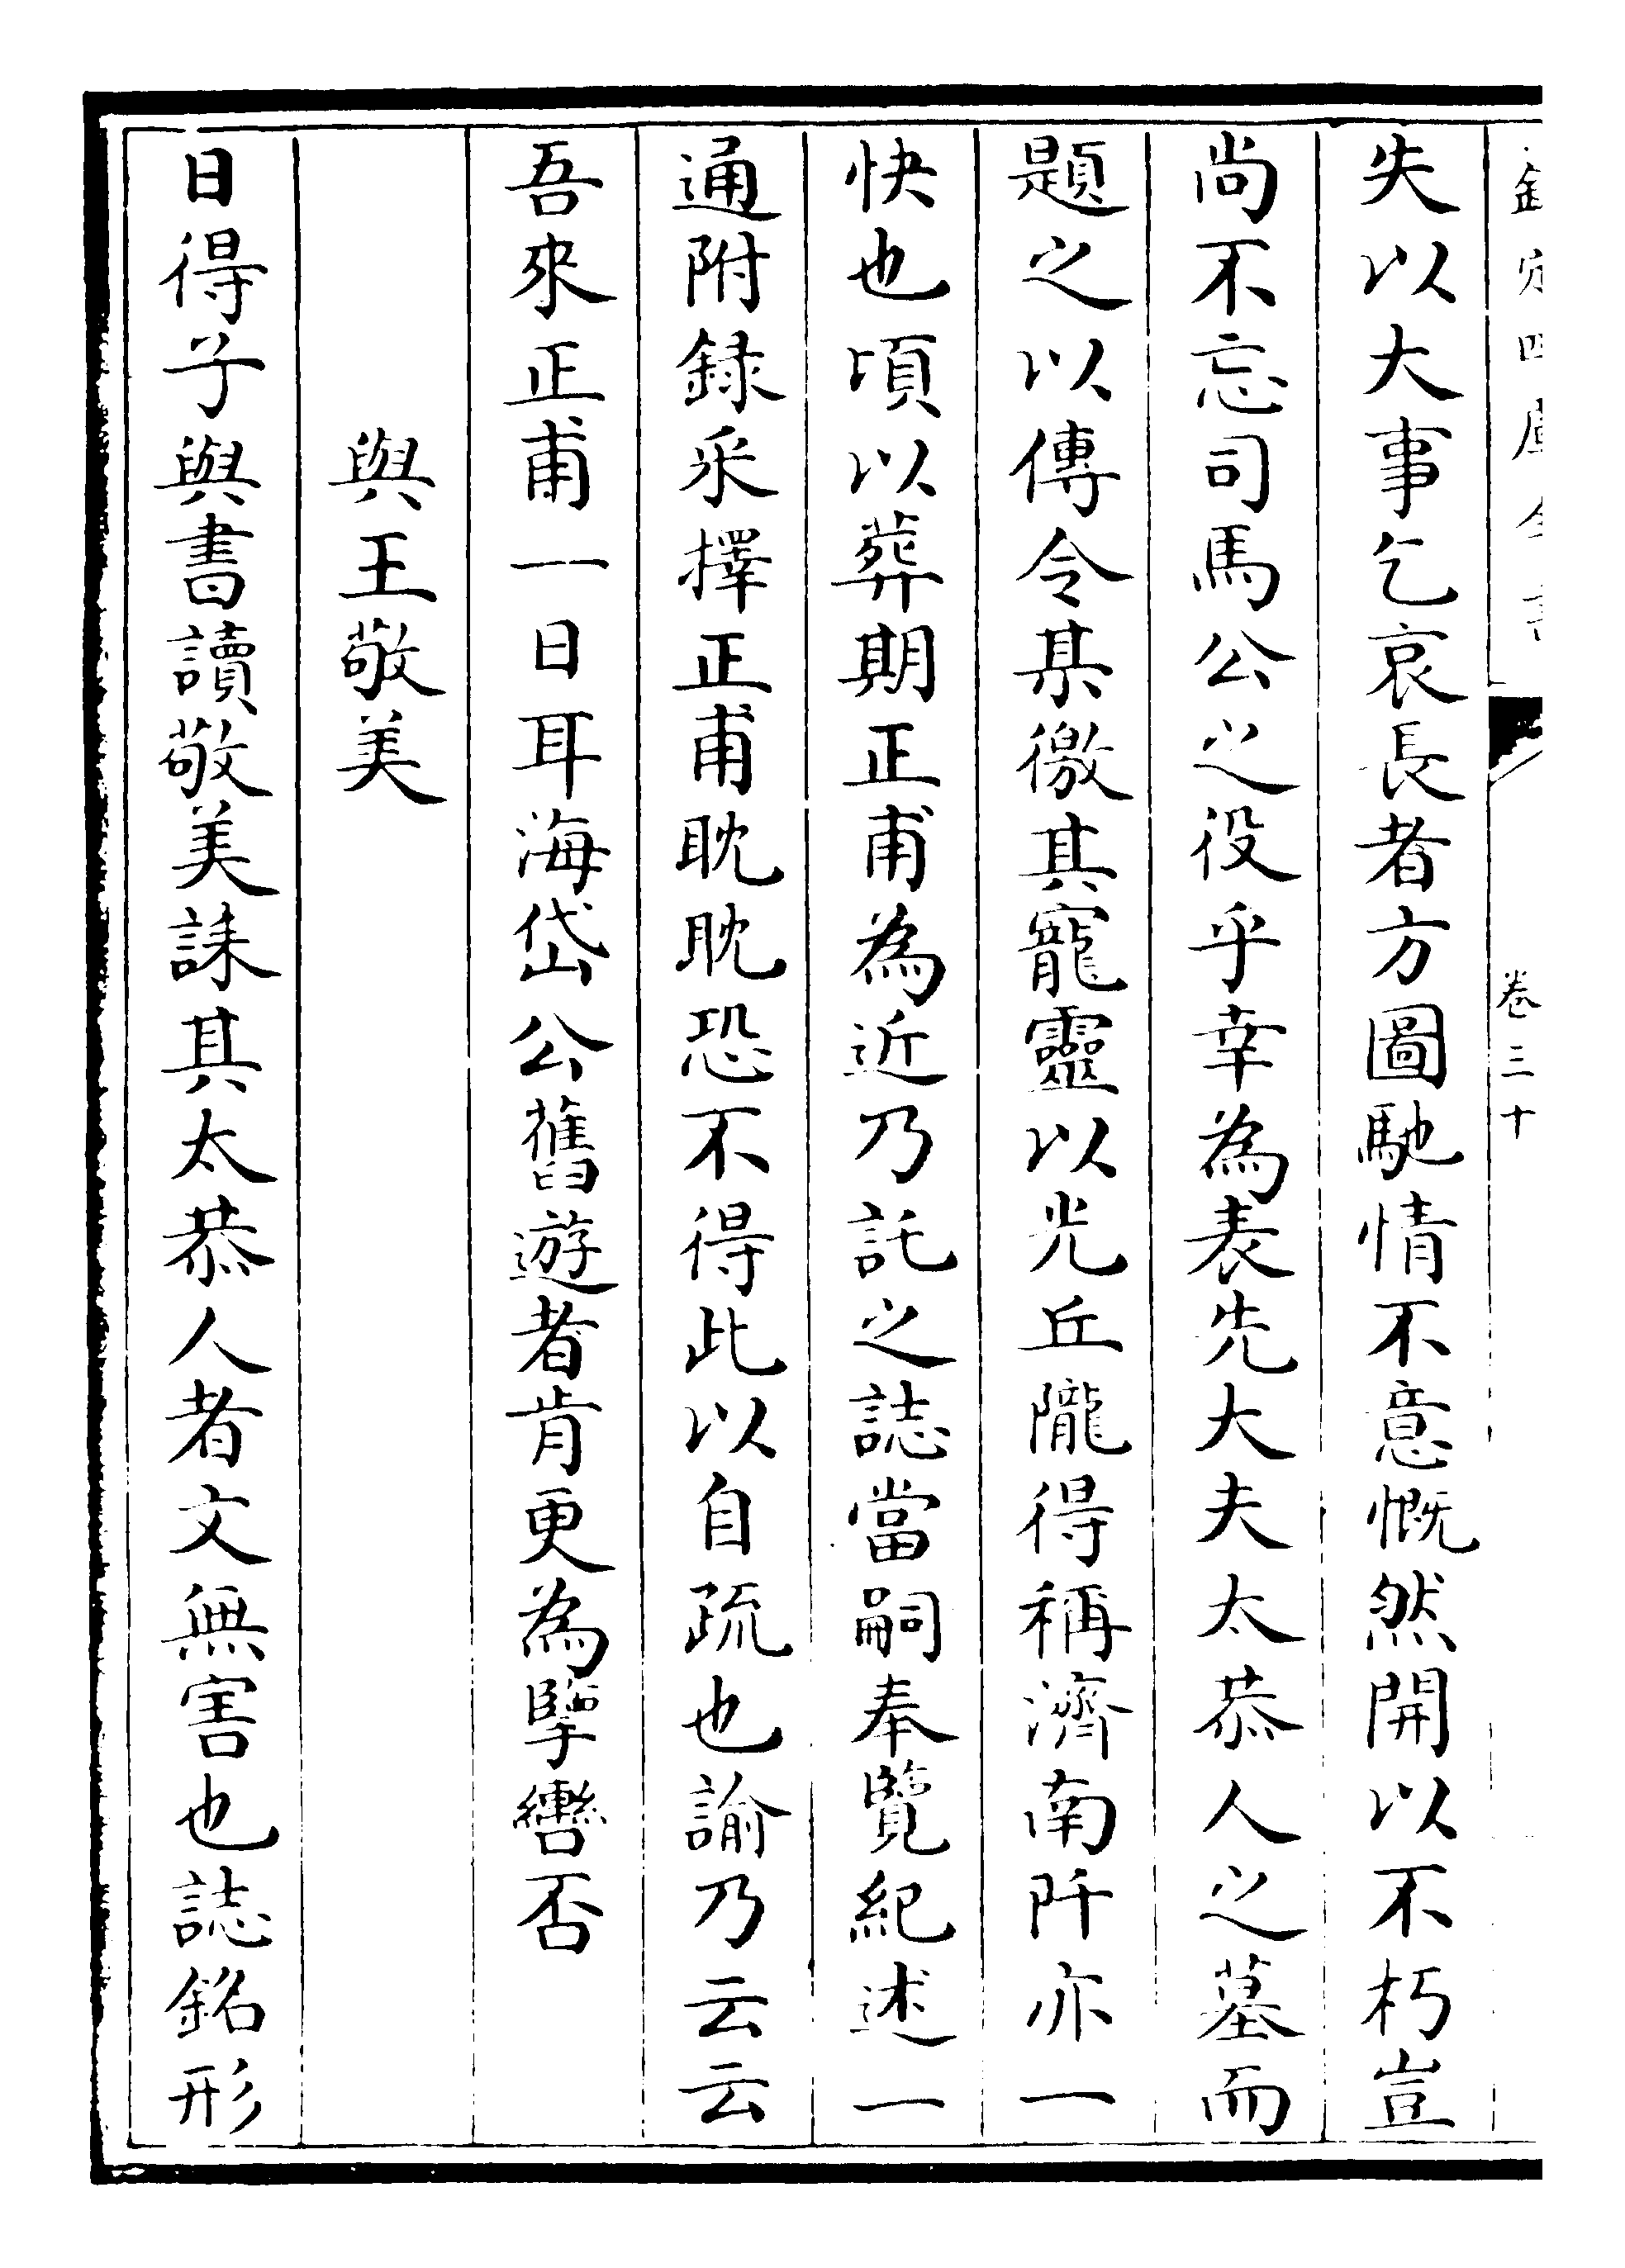 欽定四庫全書 卷三十
失以大事乞哀長者方圖馳情不意慨然開以不朽豈
尚不忘司馬公之役乎幸為表先大夫太恭人之墓而
題之以傳令某徼其寵靈以光丘隴得稱濟南阡亦一
快也頃以葬期正甫為近乃託之誌當嗣奉覽紀述一
通附録采擇正甫耽耽恐不得此以自疏也諭乃云云
吾來正甫一日耳海岱公舊遊者肯更為擥轡否
與王敬美
日得子與書讀敬美誄其太恭人者文無害也誌銘形